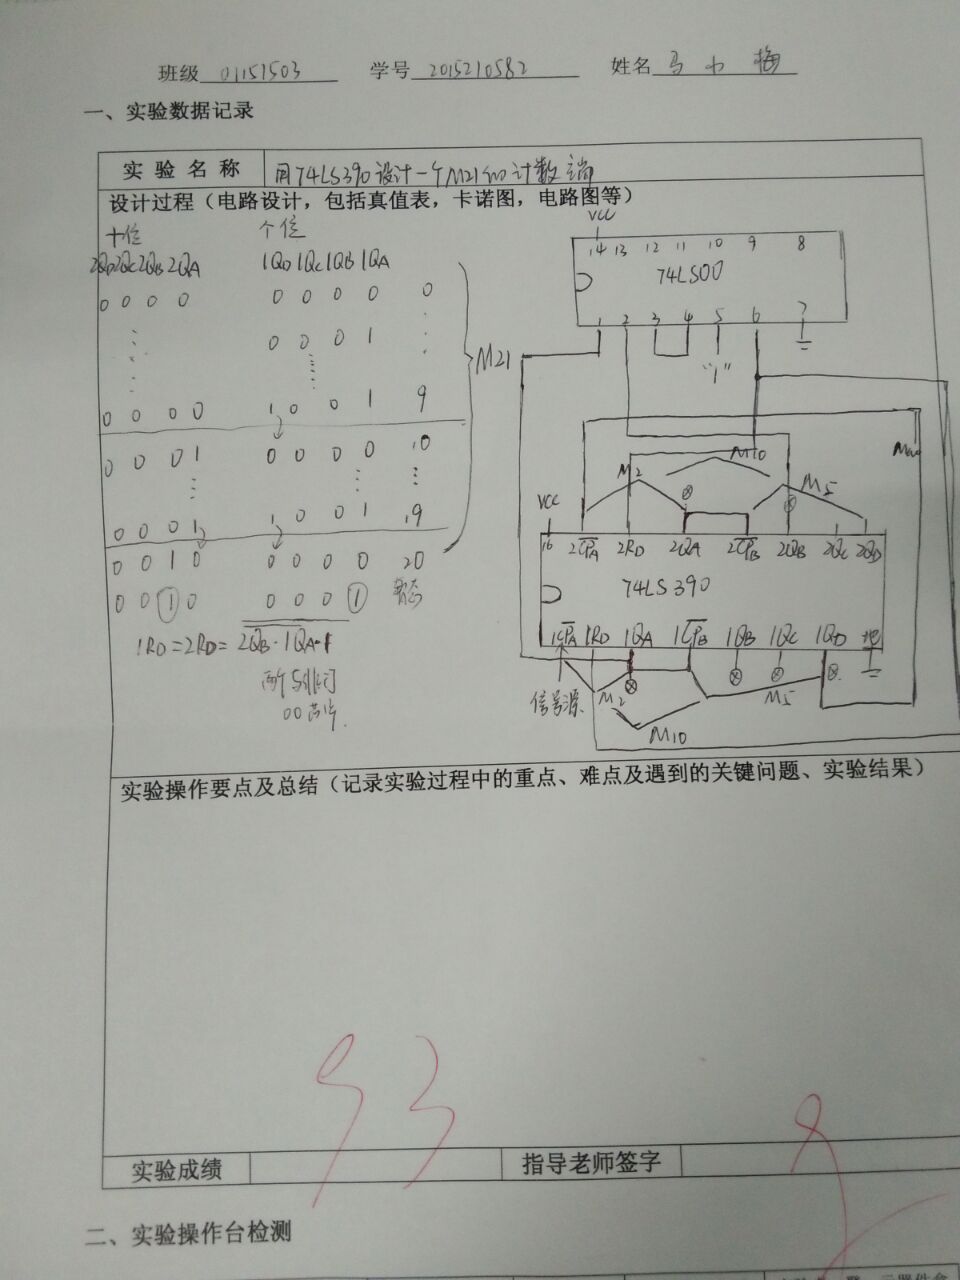 班级 01151503 学号 2015210582 姓名 马小梅
一、实验数据记录
实验名称 用74LS390设计一个M21的计数端
设计过程（电路设计，包括真值表，卡诺图，电路图等）
十位 个位
2QD2QC2QB2QA 1QD1QC1QB1QA
0 0 0 0 0 0 0 0 0
0 0 0 1
0 0 0 0 1 0 0 1 9
0 0 0 1 0 0 0 0 10
0 0 0 1 1 0 0 1 19
0 0 1 0 0 0 0 0 20
0 0 1 0 0 0 0 1 暂态
M21
1RD=2RD=2QB·1QA·1
两个与非门
00芯片.
VCC
14 13 12 11 10 9 8
74LS00
1 2 3 4 5 6 7
"1"
M2 M10 M5
VCC
16 2CPA 2RD 2QA 2CPB 2QB 2QC 2QD
74LS390
1CPA 1RD 1QA 1CPB 1QB 1QC 1QD 地
信号源 M2 M5
M10
实验操作要点及总结（记录实验过程中的重点、难点及遇到的关键问题、实验结果）
93
实验成绩 指导老师签字
二、实验操作台检测